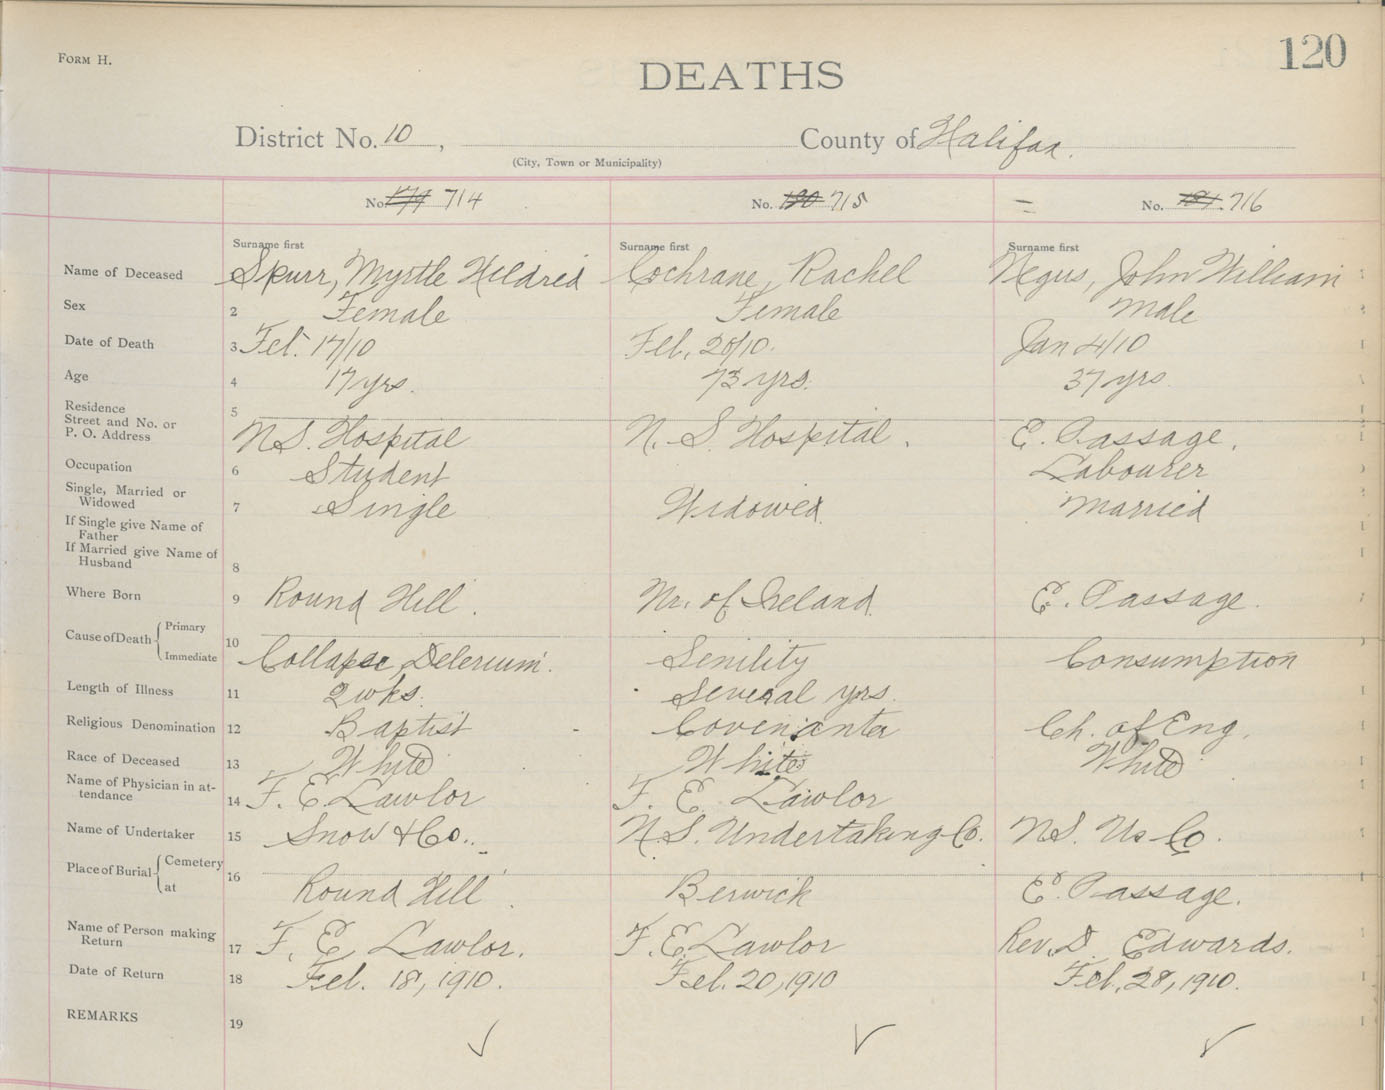 FORM H.
120
DEATHS
District No. 10, County of Halifax.
(City, Town or Municipality)
No. 179 714 No. 180 715 No. 181. 716
Surname first Surname first Surname first
Name of Deceased Spurr, Myrtle Hildred Cochrane, Rachel Negus, John William
Sex 2 Female Female Male
Date of Death 3 Feb. 17/10 Feb. 20/10. Jan 4/10
Age 4 17 yrs. 73 yrs. 37 yrs
Residence 5
Street and No. or
P. O. Address N.S. Hospital N. S. Hospital. E. Passage.
Occupation 6 Student Labourer
Single, Married or
Widowed 7 Single Widowed. Married
If Single give Name of
Father
If Married give Name of
Husband 8
Where Born 9 Round Hill. Nr. of Ireland. E. Passage.
Cause of Death { Primary 10
Immediate Collapse, Delerium. Senility Consumption
Length of Illness 11 2 wks. Several yrs.
Religious Denomination 12 Baptist Covenanter Ch. of Eng.
Race of Deceased 13 White White White
Name of Physician in at-
tendance 14 F. E. Lawlor F. E. Lawlor
Name of Undertaker 15 Snow & Co.. N.S. Undertaking Co. N.S. Us Co.
Place of Burial { Cemetery 16
at Round Hill. Berwick E. Passage.
Name of Person making
Return 17 F. E. Lawlor. F. E. Lawlor Rev. D. Edwards.
Date of Return 18 Feb. 18, 1910. Feb. 20, 1910 Feb. 28, 1910.
REMARKS 19